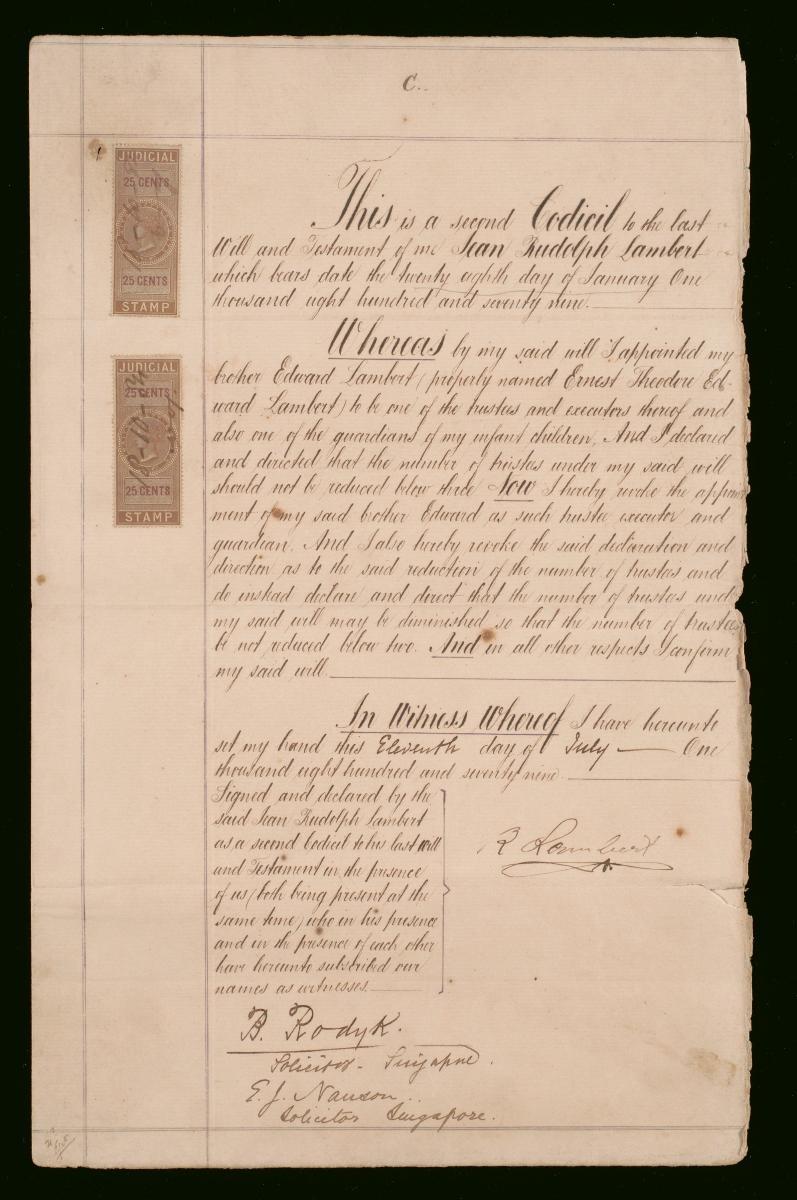 C..
JUDICIAL
25 CENTS
25 CENTS
STAMP
JUDICIAL
25 CENTS
25 CENTS
STAMP
This is a second Codicil to the last
Will and Testament of me Jean Rudolph Lambert
which bears date the twenty eighth day of January One
thousand eight hundred and seventy nine.
Whereas by my said will I appointed my
brother Edward Lambert (properly named Ernest Theodore Ed-
ward Lambert) to be one of the trustees and executors thereof and
also one of the guardians of my infant children, And I declared
and directed that the number of trustees under my said will
should not be reduced below three Now I hereby revoke the appoint
ment of my said brother Edward as such trustee executor and
guardian. And I also hereby revoke the said declaration and
direction as to the said reduction of the number of trustees and
do instead declare and direct that the number of trustees under
my said will may be diminished so that the number of trustees
be not reduced below two. And in all other respects I confirm
my said will.
In Witness Whereof I have hereunto
set my hand this Eleventh day of July — One
thousand eight hundred and seventy nine.
Signed and declared by the
said Jean Rudolph Lambert
as a second Codicil to his last will
and Testament in the presence
of us (both being present at the
same time) who in his presence
and in the presence of each other
have hereunto subscribed our
names as witnesses.
R Lambert
B. Rodyk.
Solicitor - Singapore.
E. J. Nanson..
Solicitor Singapore.